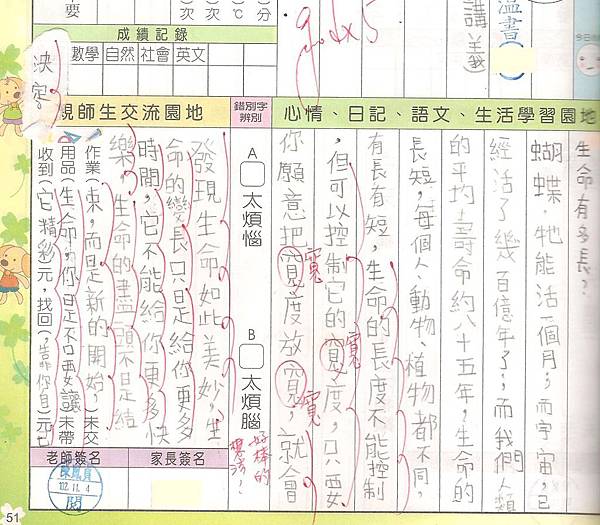 要
)次
)次
)℃
)分
成績記錄
數學 自然 社會 英文
good x5
溫書
講義
今日
親師生交流園地
錯別字辨別
心情、日記、語文、生活學習園地
生命有多長?
蝴蝶,牠能活一個月;而宇宙,已
經活了幾百億年了;而我們人類
的平均壽命約八十五年,生命的
長短,每個人、動物、植物都不同,
有長有短,生命的長度不能控制
,但可以控制它的寬度,只要
你願意把寬度放寬,就會
寬
寬
寬
A 太煩惱
B 太煩腦
好棒的
想法!
發現生命如此美妙,生
命的變長只是給你更多
時間,它不能給你更多快
樂,生命的盡頭不是結
作業(束,而是新的開始,)未交
用品(生命,你是不只要讓)未帶
收到(它精彩元,找回,靠你自)元
決定。
老師簽名
家長簽名
陳鳳貞
102.11.4
閱
51